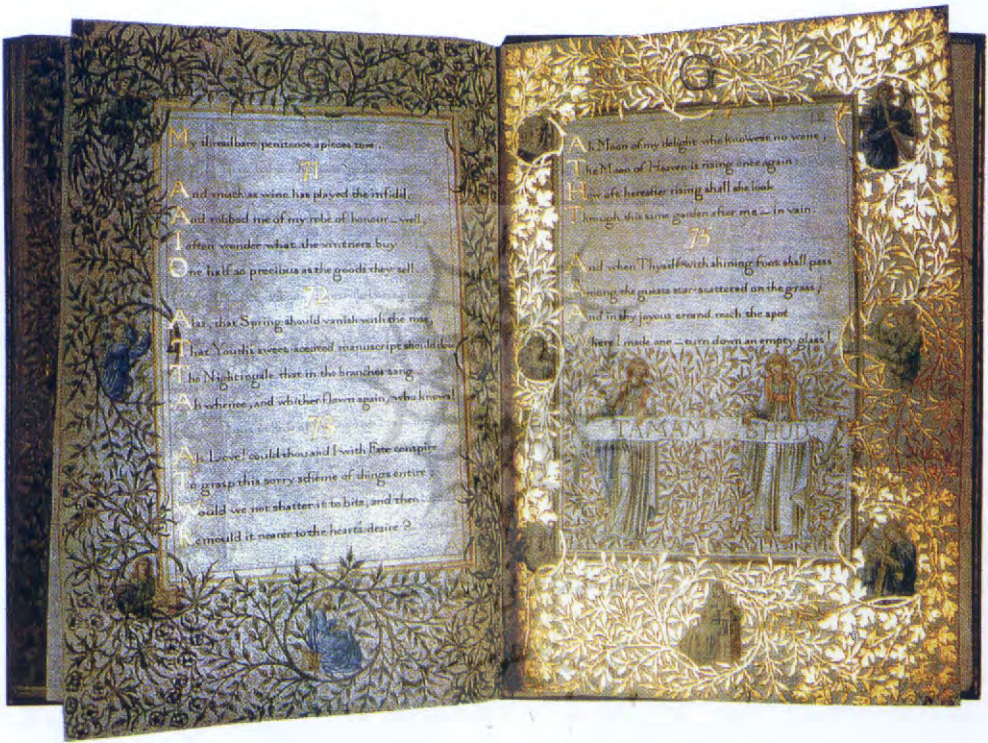 My threadbare penitence apieces tore.
71
And much as wine has played the infidel,
And robbed me of my robe of honour — well,
I often wonder what the vintners buy
One half so precious as the goods they sell.
72
Alas, that Spring should vanish with the rose,
That Youth's sweet-scented manuscript should
The Nightingale that in the branches sang
Ah whence, and whither flown again, who knows!
73
Ah Love! could thou and I with Fate conspire
To grasp this sorry scheme of things entire
Would we not shatter it to bits, and then
Remould it nearer to the heart's desire?
Ah Moon of my delight who knowest no wane,
The Moon of Heaven is rising once again:
How oft hereafter rising shall she look
Through this same garden after me — in vain.
75
And when Thyself with shining foot shall pass
Among the guests star-scattered on the grass,
And in thy joyous errand reach the spot
Where I made one — turn down an empty glass!
TAMAM SHUD